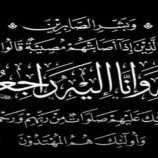 وبشر الصابرين
الذين إذا أصابتهم مصيبة قالوا
إنا لله وإنا إليه راجعون
أولئك عليهم صلوات من ربهم ورحمة
وأولئك هم المهتدون